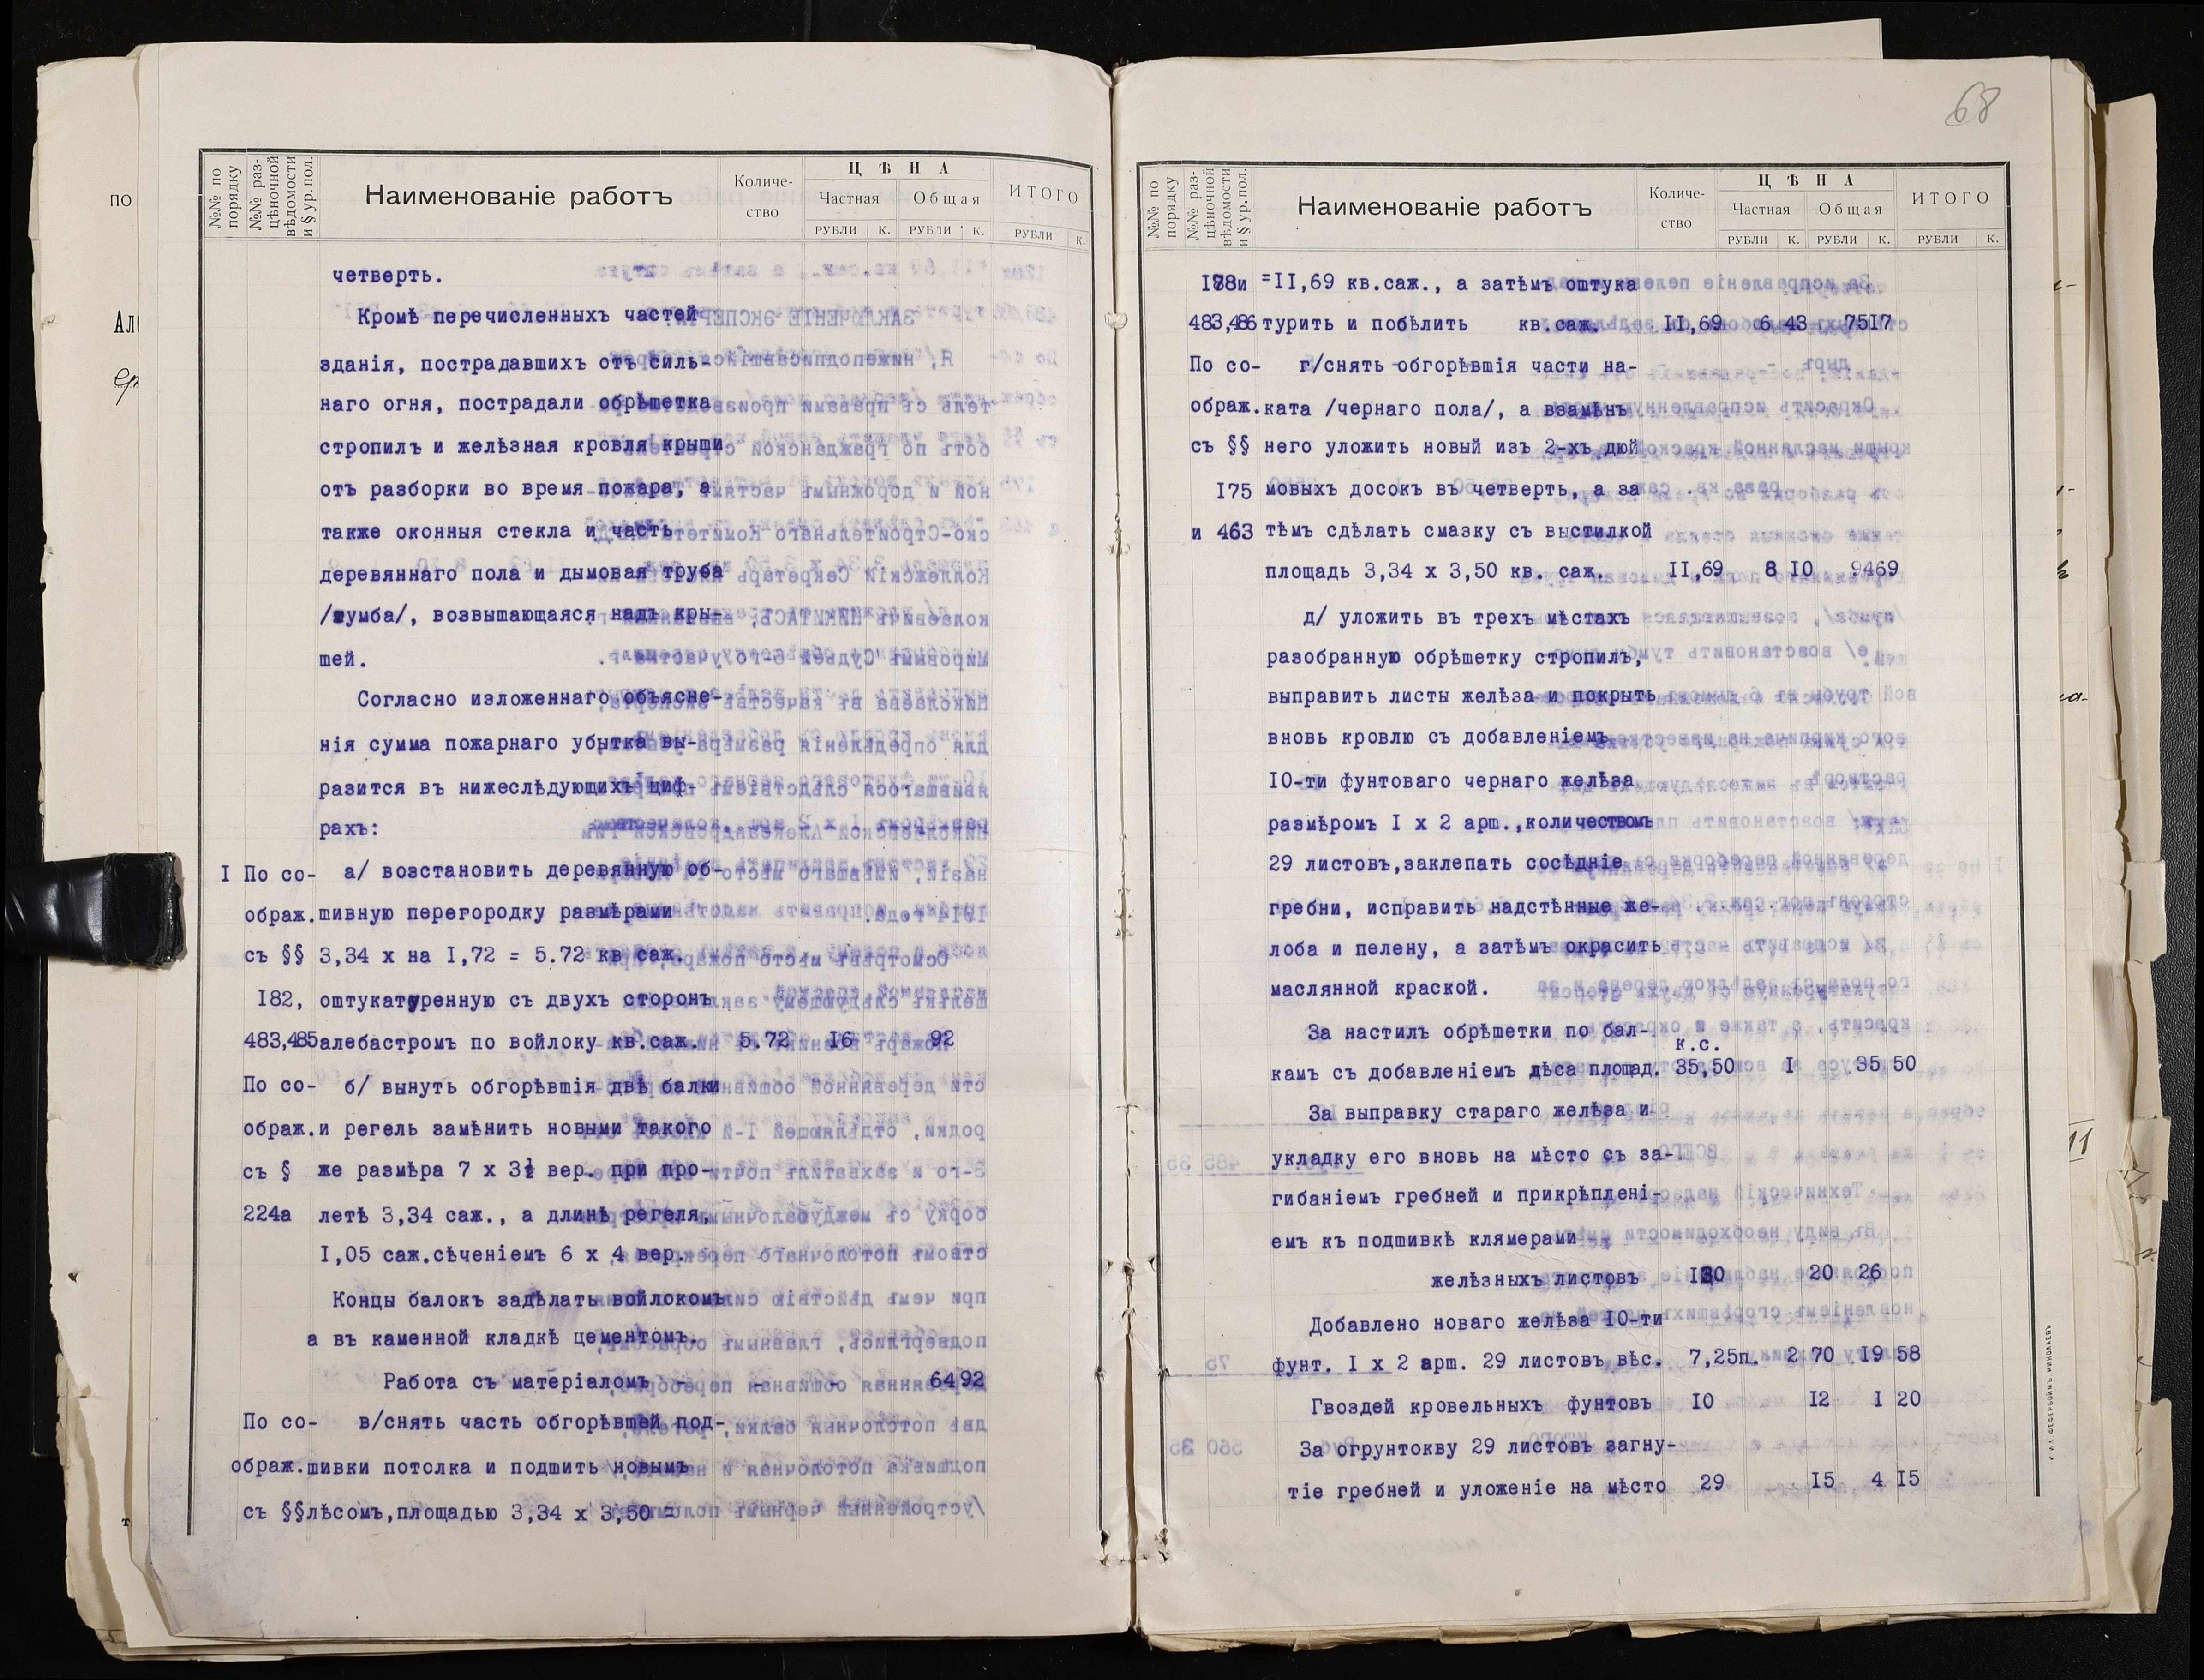 №№ по порядку
№№ раз-
цѣночной
вѣдомости
и § ур.пол.
Наименованіе работъ
Количе-
ство
ЦѢНА
Частная
Общая
ИТОГО
РУБЛИ К. РУБЛИ К. РУБЛИ К.
четверть.
Кромѣ перечисленныхъ частей
зданія, пострадавшихъ отъ силь-
наго огня, пострадали обрѣшетка
стропилъ и желѣзная кровля крыши
отъ разборки во время пожара, а
также оконныя стекла и часть
деревяннаго пола и дымовая труба
/тумба/, возвышающаяся надъ кры-
шей.
Согласно изложеннаго объясне-
нія сумма пожарнаго убытка вы-
разится въ нижеслѣдующихъ циф-
рахъ:
I По со- а/ возстановить деревянную об-
ображ. шивную перегородку размѣрами
съ §§ 3,34 х на I,72 = 5.72 кв саж.
I82, оштукатуренную съ двухъ сторонъ
483,485 алебастромъ по войлоку кв.саж. 5.72 I6 92
По со- б/ вынуть обгорѣвшія двѣ балки
ображ. и регель замѣнить новыми такого
съ § же размѣра 7 х 3½ вер. при про-
224а летѣ 3,34 саж., а длинѣ регеля,
I,05 саж.сѣченіемъ 6 х 4 вер.
Концы балокъ задѣлать войлокомъ
а въ каменной кладкѣ цементомъ.
Работа съ матеріаломъ - - - 64 92
По со- в/снять часть обгорѣвшей под-
ображ. шивки потолка и подшить новымъ
съ §§ лѣсомъ,площадью 3,34 х 3,50 =
68
№№ по порядку
№№ раз-
цѣночной
вѣдомости
и § ур.пол.
Наименованіе работъ
Количе-
ство
ЦѢНА
Частная
Общая
ИТОГО
РУБЛИ К. РУБЛИ К. РУБЛИ К.
I78и =II,69 кв.саж., а затѣмъ оштука
483,486 турить и побѣлить кв.саж. II,69 6 43 75 I7
По со- г/снять обгорѣвшія части на-
ображ. ката /чернаго пола/, а взамѣнъ
съ §§ него уложить новый изъ 2-хъ дюй
I75 мовыхъ досокъ въ четверть, а за
и 463 тѣмъ сдѣлать смазку съ выстилкой
площадь 3,34 х 3,50 кв. саж. II,69 8 I0 94 69
д/ уложить въ трехъ мѣстахъ
разобранную обрѣшетку стропилъ,
выправить листы желѣза и покрыть
вновь кровлю съ добавленіемъ
I0-ти фунтоваго чернаго желѣза
размѣромъ I х 2 арш.,количествомъ
29 листовъ,заклепать сосѣдніе
гребни, исправить надстѣнные же-
лоба и пелену, а затѣмъ окрасить
маслянной краской.
За настилъ обрѣшетки по бал-
к.с.
камъ съ добавленіемъ лѣса площад. 35,50 I 35 50
За выправку стараго желѣза и
укладку его вновь на мѣсто съ за-
гибаніемъ гребней и прикрѣплені-
емъ къ подшивкѣ клямерами
желѣзныхъ листовъ I30 20 26
Добавлено новаго желѣза I0-ти
фунт. I х 2 арш. 29 листовъ вѣс. 7,25п. 2 70 I9 58
Гвоздей кровельныхъ фунтовъ I0 I2 I 20
За огрунтокву 29 листовъ загну-
тіе гребней и уложеніе на мѣсто 29 I5 4 I5